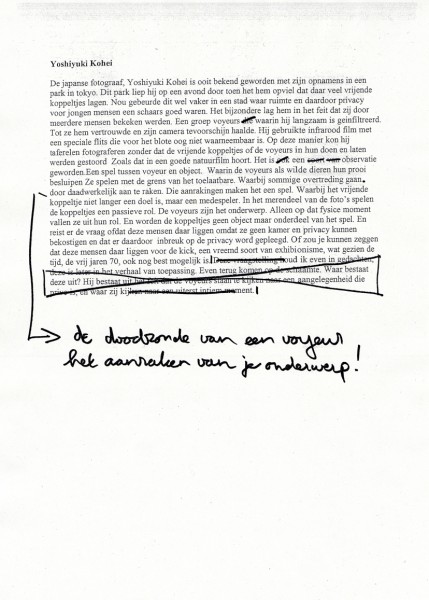 Yoshiyuki Kohei
De japanse fotograaf, Yoshiyuki Kohei is ooit bekend geworden met zijn opnamens in een
park in tokyo. Dit park liep hij op een avond door toen het hem opviel dat daar veel vrijende
koppeltjes lagen. Nou gebeurde dit wel vaker in een stad waar ruimte en daardoor privacy
voor jongen mensen een schaars goed waren. Het bijzondere lag hem in het feit dat zij door
meerdere mensen bekeken werden. Een groep voyeurs die waarin hij langzaam is geinfiltreerd.
Tot ze hem vertrouwde en zijn camera tevoorschijn haalde. Hij gebruikte infrarood film met
een speciale flits die voor het blote oog niet waarneembaar is. Op deze manier kon hij
taferelen fotograferen zonder dat de vrijende koppeltjes of de voyeurs in hun doen en laten
werden gestoord Zoals dat in een goede natuurfilm hoort. Het is ook een soort van observatie
geworden.Een spel tussen voyeur en object. Waarin de voyeurs als wilde dieren hun prooi
besluipen Ze spelen met de grens van het toelaatbare. Waarbij sommige overtreding gaan.
door daadwerkelijk aan te raken. Die aanrakingen maken het een spel. Waarbij het vrijende
koppeltje niet langer een doel is, maar een medespeler. In het merendeel van de foto's spelen
de koppeltjes een passieve rol. De voyeurs zijn het onderwerp. Alleen op dat fysice moment
vallen ze uit hun rol. En worden de koppeltjes geen object maar onderdeel van het spel. En
reist er de vraag ofdat deze mensen daar liggen omdat ze geen kamer en privacy kunnen
bekostigen en dat er daardoor inbreuk op de privacy word gepleegd. Of zou je kunnen zeggen
dat deze mensen daar liggen voor de kick, een vreemd soort van exhibionisme, wat gezien de
tijd, de vrij jaren 70, ook nog best mogelijk is. Deze vraagstelling houd ik even in gedachten,
deze is later in het verhaal van toepassing. Even terug komen op de schaamte. Waar bestaat
deze uit? Hij bestaat uit het feit dat de voyeurs staan te kijken naar een aangelegenheid die
prive is, en waar zij kijken naar een uiterst intiem moment.
de doodzonde van een voyeur
het aanraken van je onderwerp!